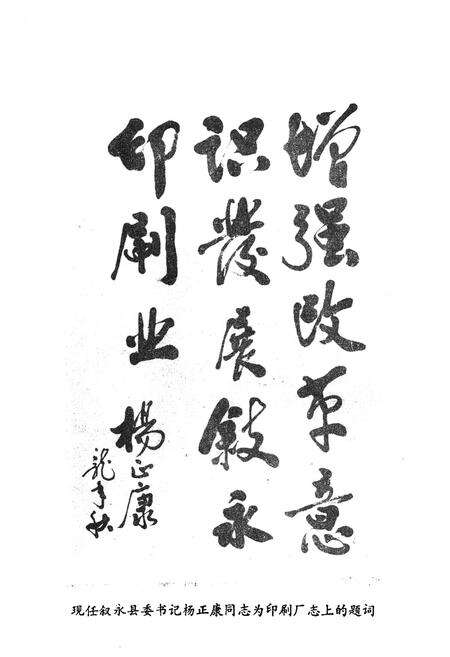 增强改革意
识發展叙永
印刷业
楊正康
龍年秋
现任叙永县委书记杨正康同志为印刷厂志上的题词